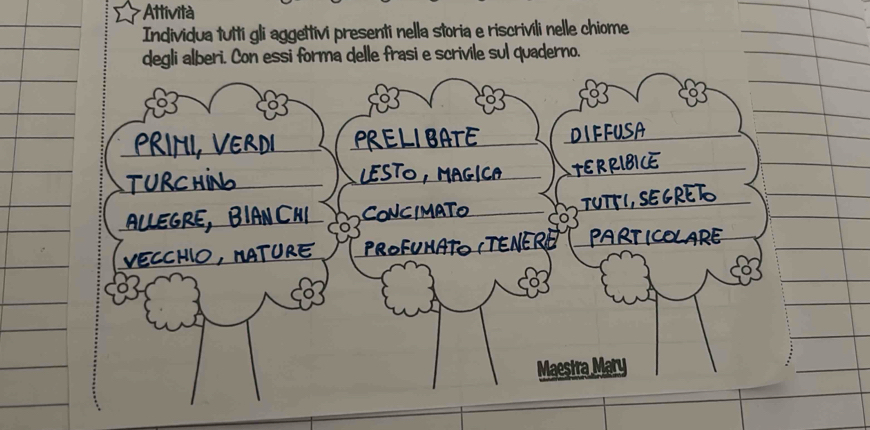 Attività
Individua tutti gli aggettivi presenti nella storia e riscrivili nelle chiome
degli alberi. Con essi forma delle frasi e scrivile sul quaderno.
PRIMI, VERDI
TURCHINO
ALLEGRE, BIANCHI
VECCHIO, MATURE
PRELIBATE
LESTO, MAGICA
CONCIMATO
PROFUMATO, TENERE
DIFFUSA
TERRIBILE
TUTTI, SEGRETO
PARTICOLARE
Maestra Mary